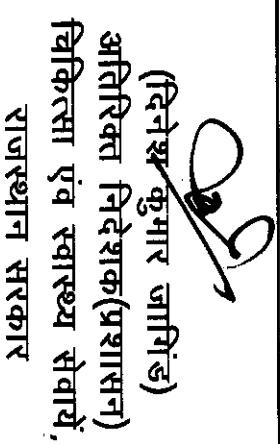 (दिनेश कुमार जांगिड)
अतिरिक्त निदेशक(प्रशासन)
चिकित्सा एंव स्वास्थ्य सेवायें,
राजस्थान सरकार